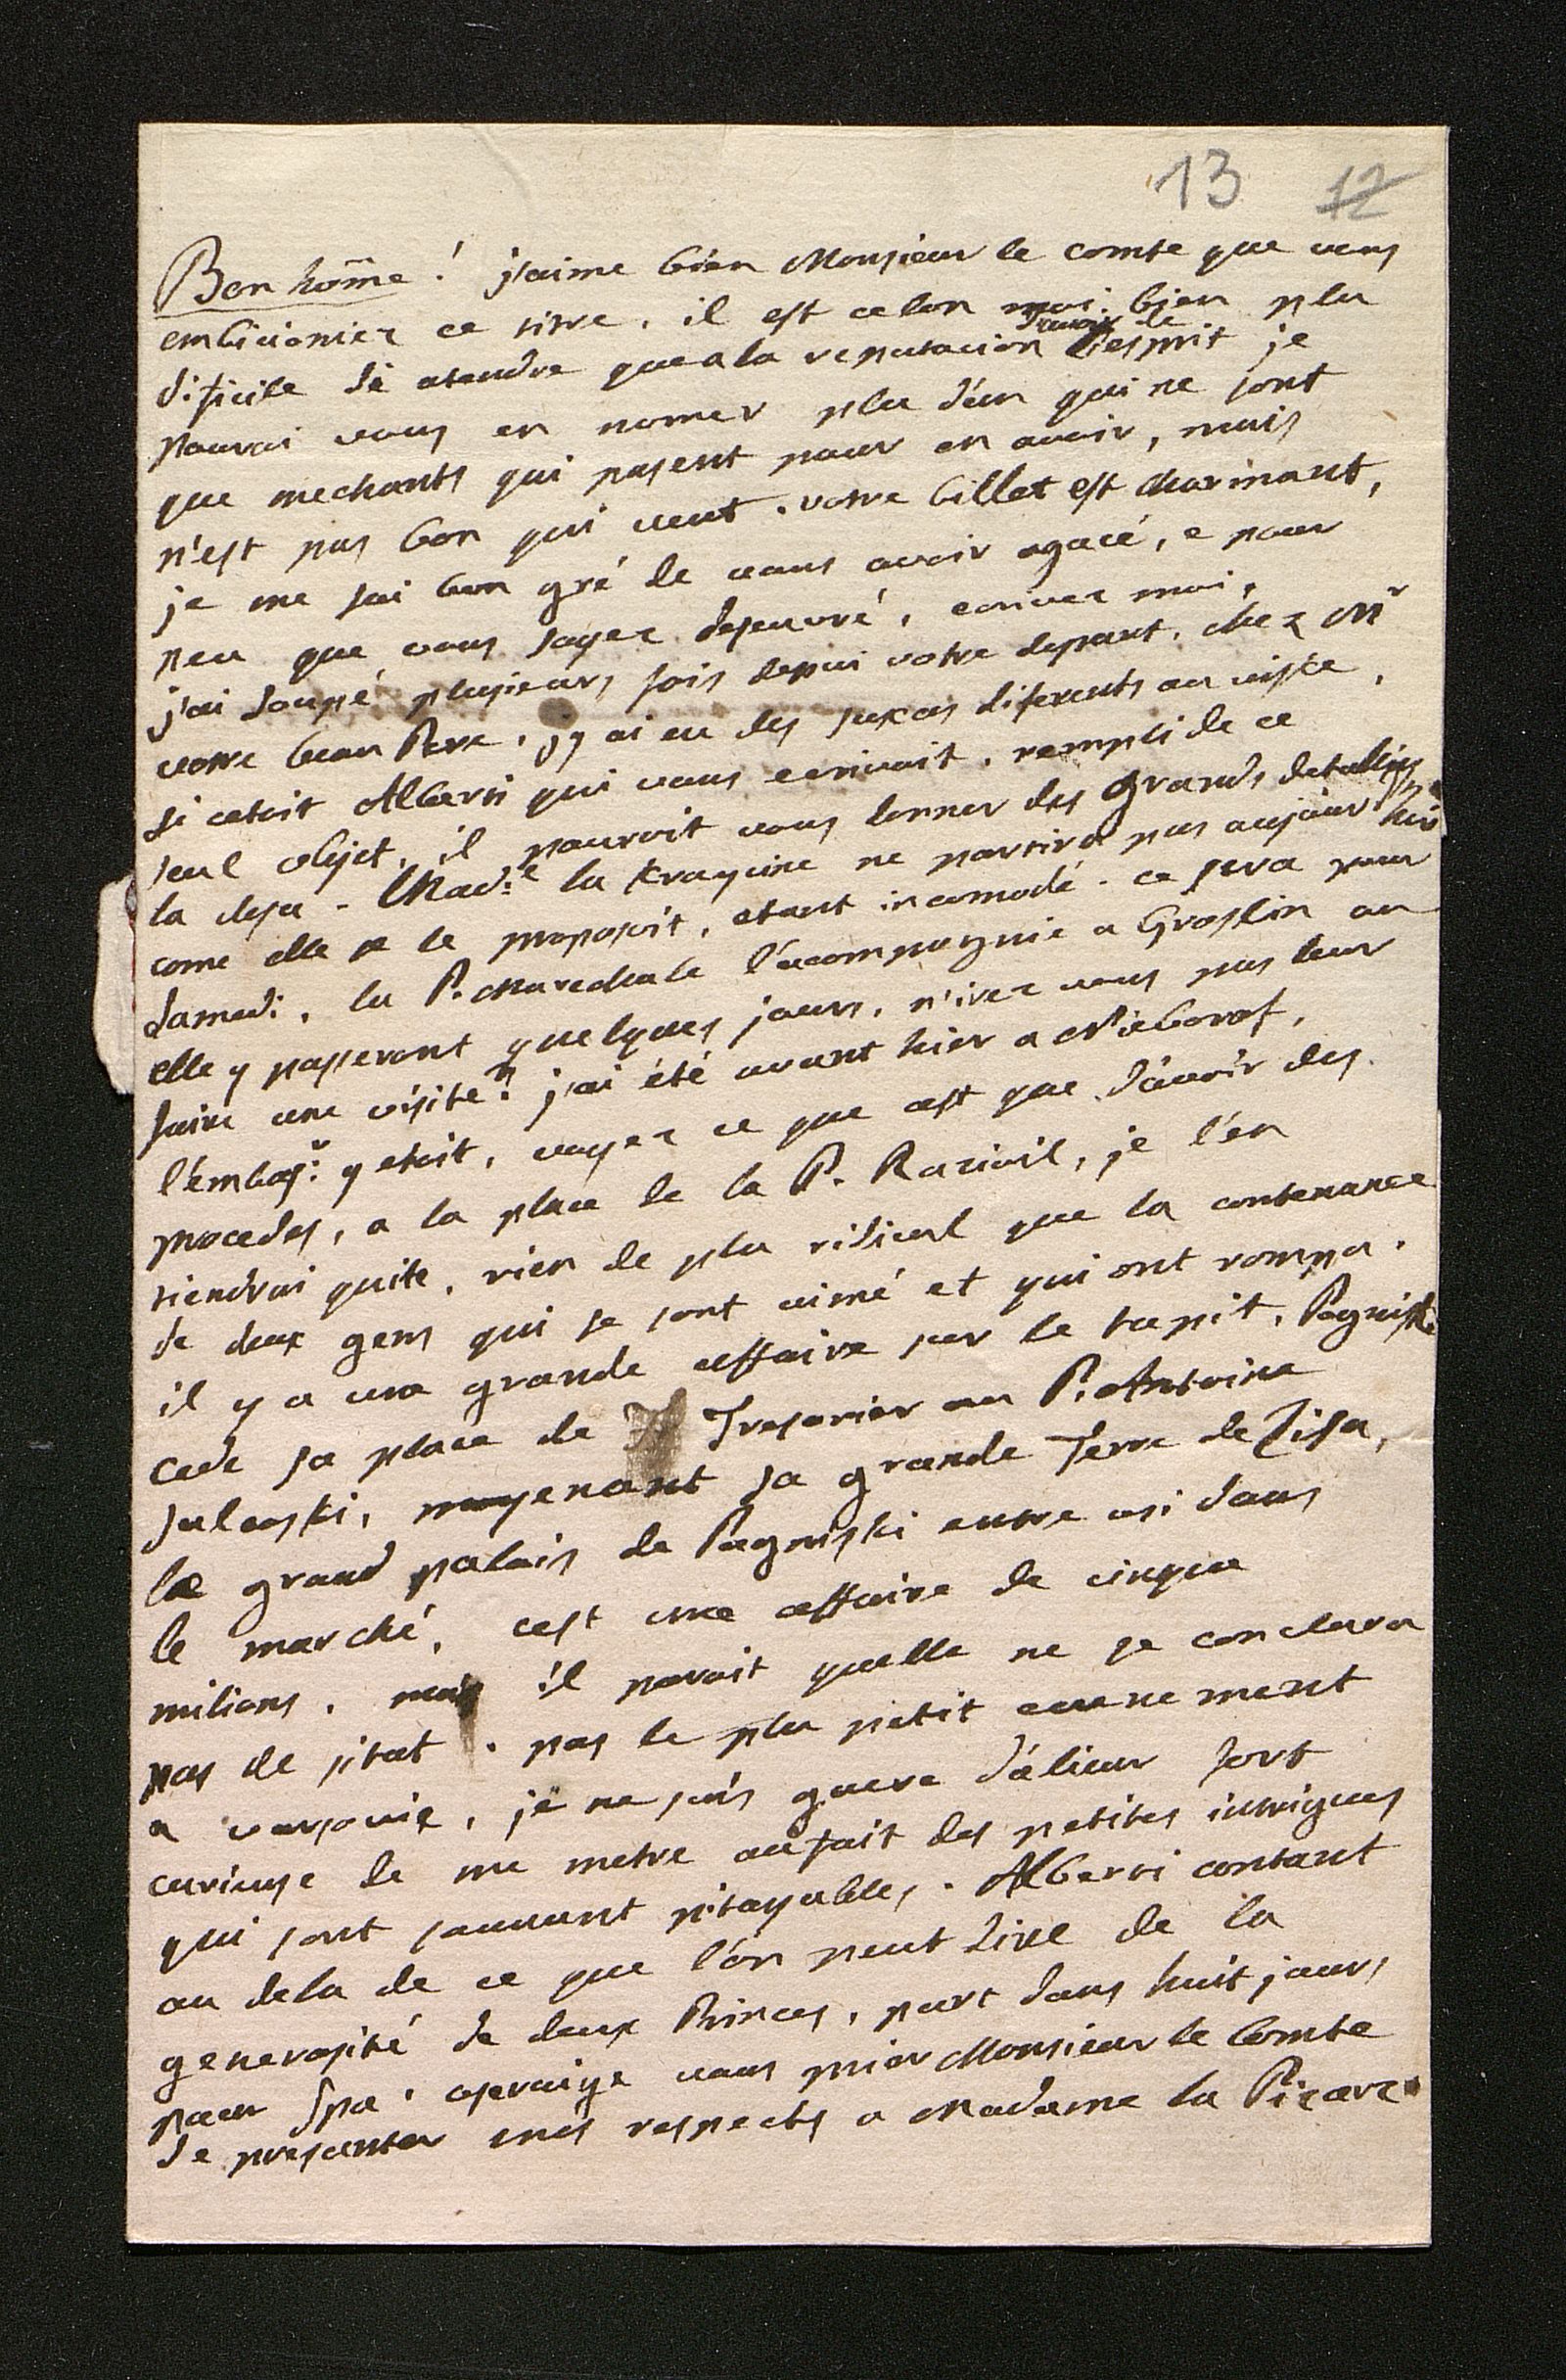 13 12
Bon hom̃e ! j'aime bien Monsieur le comte que vous
embicionier ce titre, il est celon moi bien plu
dificile d'i atendre que a la reputacion d'avoir de l'esprit je
pourai vous en nomer plu d'un qui ne sont
que mechants qui pasent pour en avoir, mais
n'est pas bon qui veut. votre billet est charmant,
je me sai bon gré de vous avoir agacé, e pour
peu que vous soyez desouvré, ecrivez moi,
j'ai soupé plusieurs fois depui votre depart, chez Mr
votre beau Pere, j'y ai eu des suxces diferents au wiske,
si cetoit Alberti qui vous ecrivoit, rempli de ce
seul objet, il pouroit vous donner des grands detaills
la desu. Mad:e la Kraycine ne partira pas aujour hui
come elle se le proposoit, etant incomodé. ce sera pour
samedi, la P. Marechale l'acompagnie a Groslin ou
elle y passeront quelques jours, n'irez vous pas leur
faire une visite? j'ai été avant hier a Nieborof,
l'embas:r y etoit, voyez ce que cest que d'avoir des
procedes, a la place de la P. Razivil, je l'en
tiendrai quite, rien de plu ridicul que la contenance
de deux gens qui se sont aimé et qui ont rompu.
il y a une grande affaire sur le tapit, Pogniski
cede sa place de Tresorier au P. Antoine
Sulcoski, moyenant sa grande Terre de Lisa,
le grand palais de Pogniski entre osi dans
le marché, cest une affaire de cinque
milions, mais il paroit quelle ne se conclura
pas de sitot. pas le plu petit evenement
a varsovie, je ne suis guere d'alieur fort
curieuse de me metre au fait des petites intrigues
qui sont souvant pitoyables. Alberti contant
au dela de ce que l'on peut dire de la
generosité de deux Princes, part dans huit jours
pour Spa. oseraige vous prier Monsieur le Comte
de presenter mes respects a Madame la Pizarz